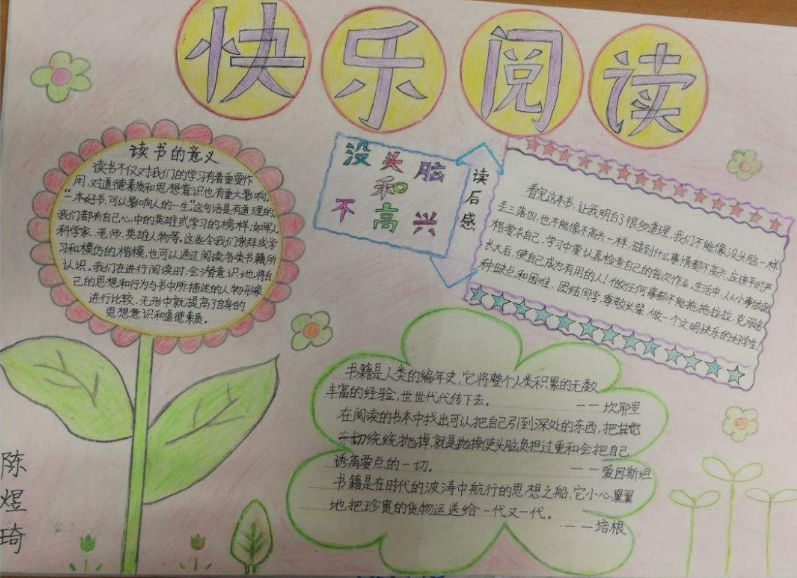 快乐阅读
读书的意义
读书不仅对我们的学习有着重要作
用,对道德素质和思想意识也有重大影响,
"一本好书,可以影响人的一生"这句话是有道理的。
我们都有自己心中的英雄或学习的榜样,如军人、
科学家、老师、英雄人物等,这些令我们崇拜或学
习和模仿的楷模,也可以通过阅读各类书籍所
认识。我们在进行阅读时,会潜意识地将自
己的思想和行为与书中所描述的人物形象
进行比较,无形中就提高了自身的
思想意识和道德素质。
没头脑
和
不高兴
读后感
看完这本书,让我明白了很多道理,我们不能像没头脑一样
丢三落四,也不能像不高兴一样,碰到什么事情都不高兴,应该平时严
格要求自己,学习中要认真检查自己的每次作业,生活中,从小事做起
长大后,使自己成为有用的人!做任何事都不能拖拖拉拉,克服各
种缺点和困难,团结同学,尊敬长辈,做一个文明快乐的好学生。
书籍是人类的编年史,它将整个人类积累的无数
丰富的经验,世世代代传下去。——坎耶里
在阅读的书本中找出可以把自己引到深处的东西,把其他
一切统统抛掉,就是抛掉使头脑负担过重和会把自己
诱离要点的一切。——爱因斯坦
书籍是在时代的波涛中航行的思想之船,它小心翼翼
地把珍贵的货物运送给一代又一代。——培根
陈煜琦